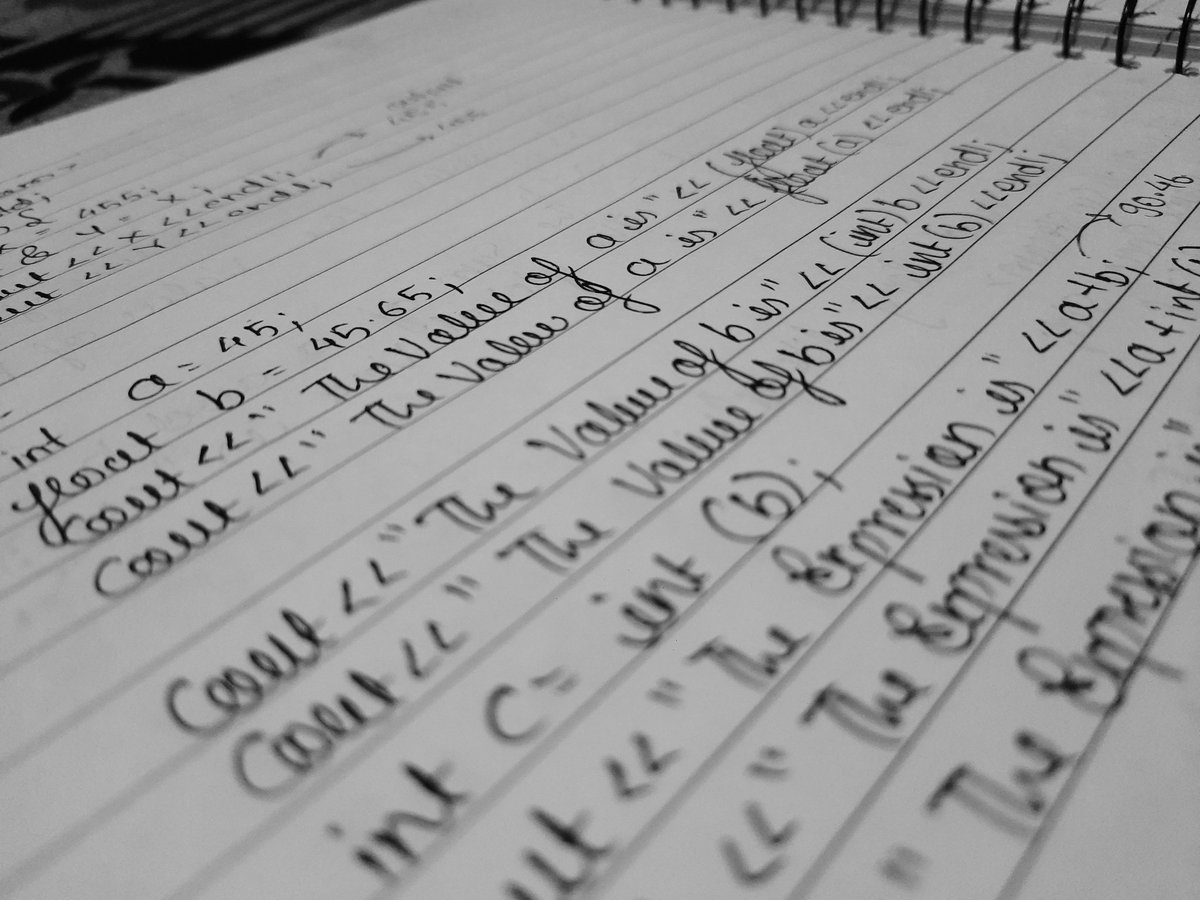 455;
= x;
<< x << endl;
<< y << endl;
int a = 45;
float b = 45.65;
cout <<" The Value of a is" << (float) a << endl;
cout <<" The Value of a is" << float (a) << endl;
cout <<" The Value of b is" << (int) b << endl;
cout <<" The Value of b is" << int (b) << endl;
int c = int (b);
<<" The Expression is" << a+b; 90.46
<<" The Expression is" << a + int(
" The Expression